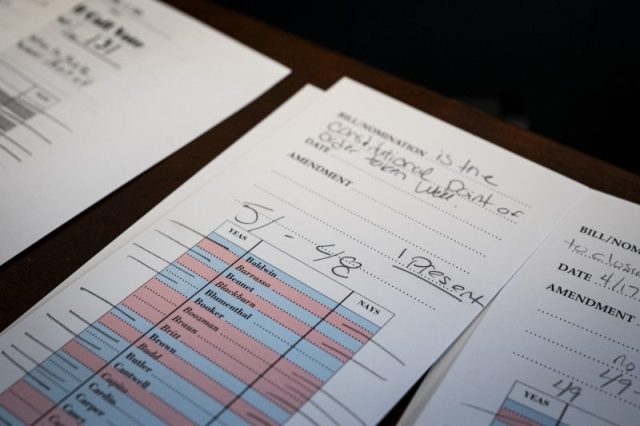 ll Call Vote
131
NAY
BILL/NOMINATION is the
Constitutional Point of
DATE order taken well
AMENDMENT
51 - 48 1 Present
YEAS
NAYS
Baldwin
Barrasso
Bennet
Blackburn
Blumenthal
Booker
Boozman
Braun
Britt
Brown
Budd
Butler
Cantwell
Capito
Cardin
Carper
BILL/NOMIN
to
DATE 4/17
AMENDMENT
no
49-
49
YEAS